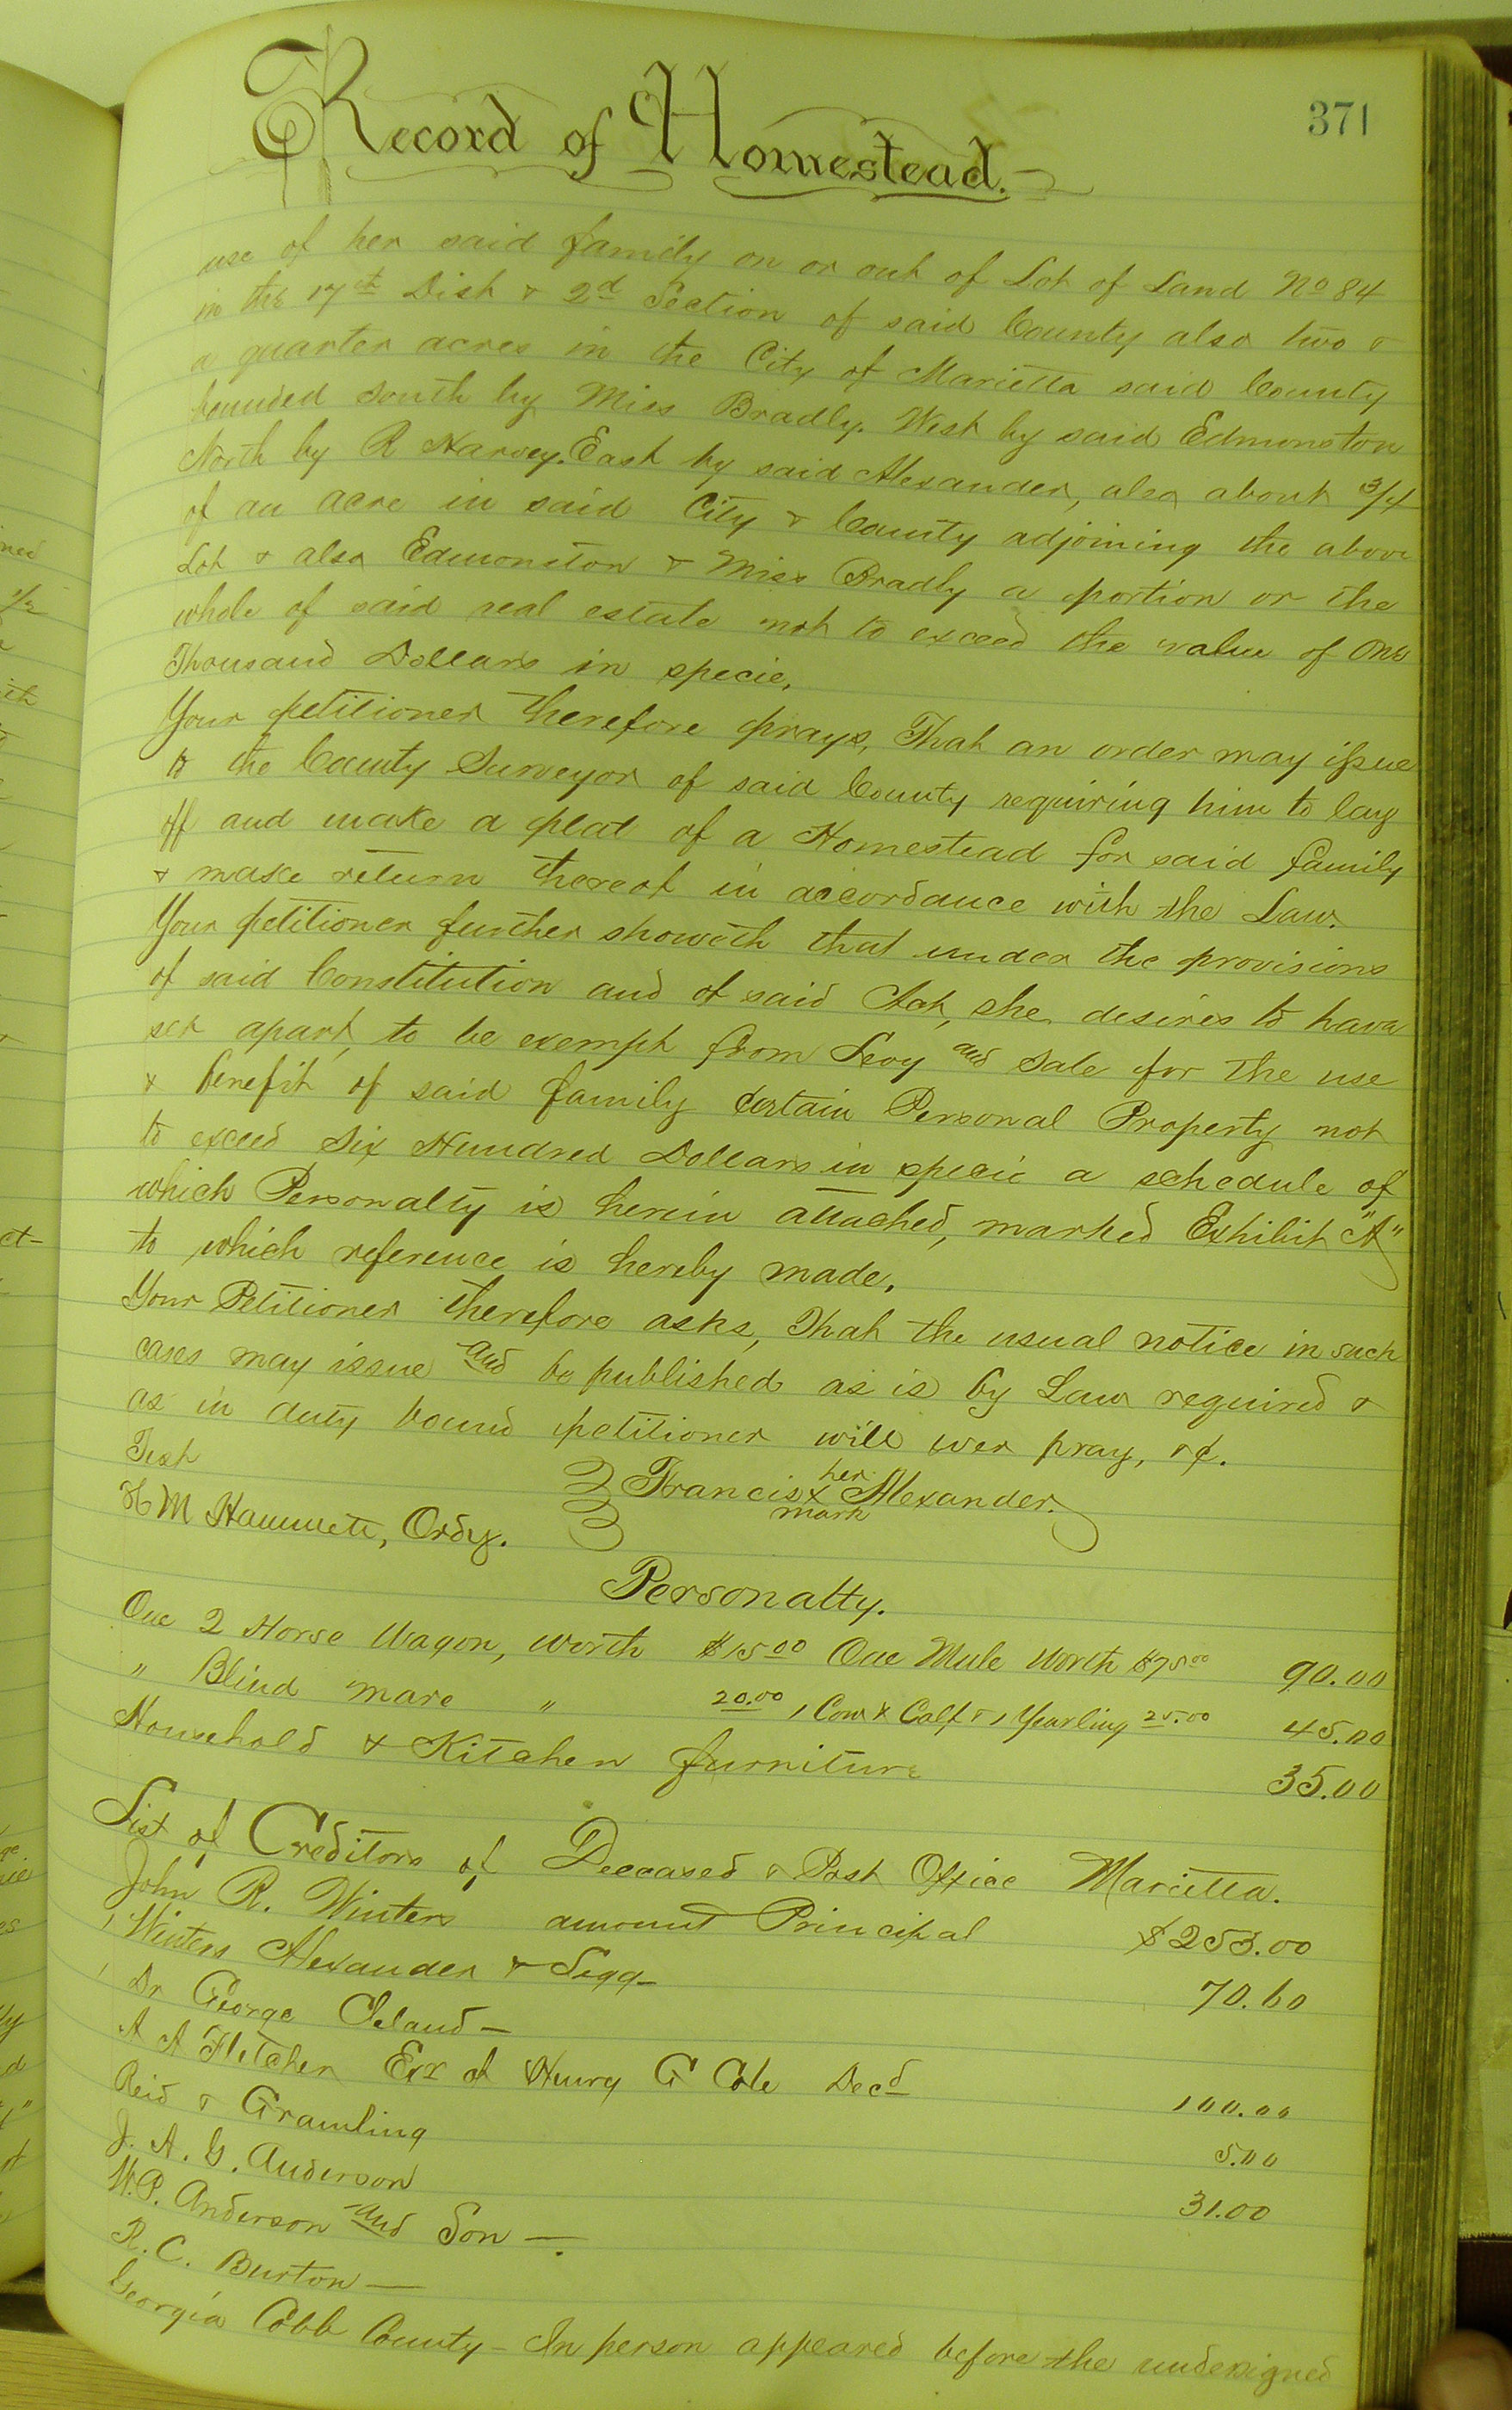 371
Record of Homestead.
use of her said family on or out of Lot of Land No 84
in the 17th Dist & 2d Section of said County also two &
a quarter acres in the City of Marietta said County
bounded South by Miss Bradly. West by said Edmonston
North by R Harvey. East by said Alexander, also about 3/4
of an acre in said City & County adjoining the above
Lot & also Edmonston & Miss Bradly a portion or the
whole of said real estate not to exceed the value of One
Thousand Dollars in specie.
Your petitioner therefore prays, That an order may issue
to the County Surveyor of said County requiring him to lay
off and make a plat of a Homestead for said family
& make return thereof in accordance with the Law.
Your petitioner further showeth that under the provisions
of said Constitution and of said Act, she desires to have
set apart, to be exempt from Levy and Sale for the use
& benefit of said family certain Personal Property not
to exceed Six Hundred Dollars in specie a schedule of
which Personalty is herein attached, marked Exhibit "A"
to which reference is hereby made.
Your Petitioner therefore asks, That the usual notice in such
cases may issue and be published as is by Law required &
as in duty bound petitioner will ever pray, &c.
Test
her
Francis x Alexander.
mark
H M Hammett, Ordy.
Personalty.
One 2 Horse Wagon, worth $15 00 One Mule Worth $75 00 90.00
" Blind mare " 20.00 1 Cow & Calf & 1 Yearling 25.00 45.00
Household & Kitchen furniture 35.00
List of Creditors of Deceased & Post Office Marietta.
John R. Winters amount Principal $253.00
Winters Alexander & Legg 70.60
Dr George Cleland —
A A Fletcher Exr of Henry G Cole Decd 100.00
Reid & Gramling 5.00
J. A. G. Anderson 31.00
W.P. Anderson and Son —.
R. C. Burton —
Georgia Cobb County – In person appeared before the undersigned